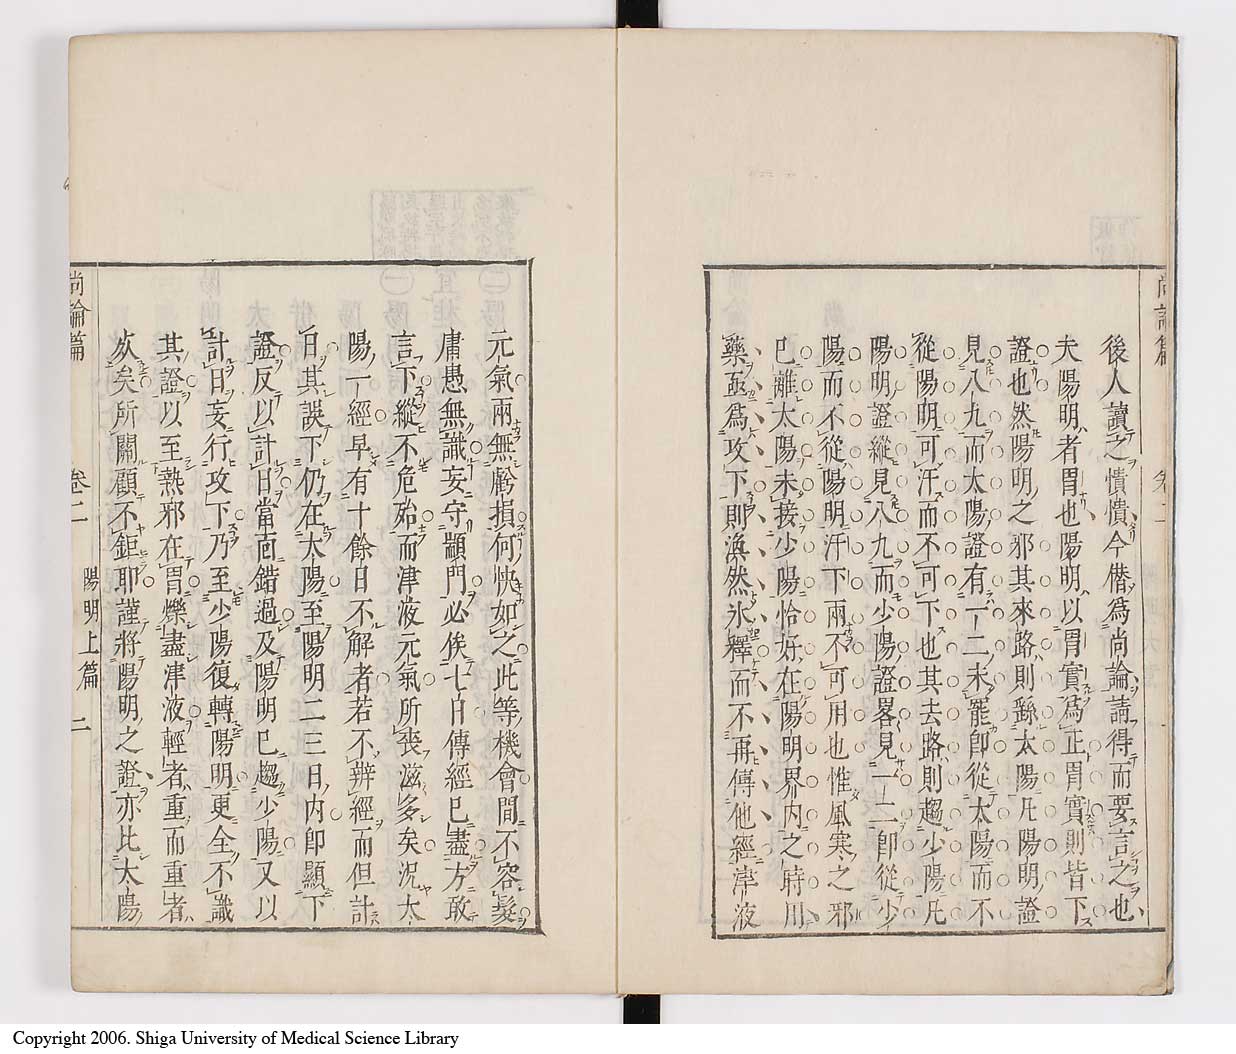 尚論篇 卷二
後人讀之憒憒今僭爲尚論請得而要言之也
夫陽明者胃也陽明以胃實爲正胃實則皆下
證也然陽明之邪其來路則繇太陽凡陽明證
見八九而太陽證有一二未罷卽從太陽而不
從陽明可汗而不可下也其去路則趨少陽凡
陽明證縱見八九而少陽證畧見一二卽從少
陽而不從陽明汗下兩不可用也惟風寒之邪
已離太陽未接少陽恰好在陽明界內之時用
藥亟爲攻下則渙然氷釋而不再傳他經津液
元氣兩無虧損何快如之此等機會間不容髮
庸愚無識妄守顓門必俟七日傳經已盡方敢
言下縱不危殆而津液元氣所喪滋多矣況太
陽一經早有十餘日不解者若不辨經而但計
日其誤下仍在太陽至陽明二三日內卽顯下
證反以計日當面錯過及陽明已趨少陽又以
計日妄行攻下乃至少陽復轉陽明更全不識
其證以至熱邪在胃爍盡津液輕者重而重者
死矣所關顧不鉅耶謹將陽明之證亦比太陽
尚論篇 卷二 陽明上篇 二
Copyright 2006. Shiga University of Medical Science Library